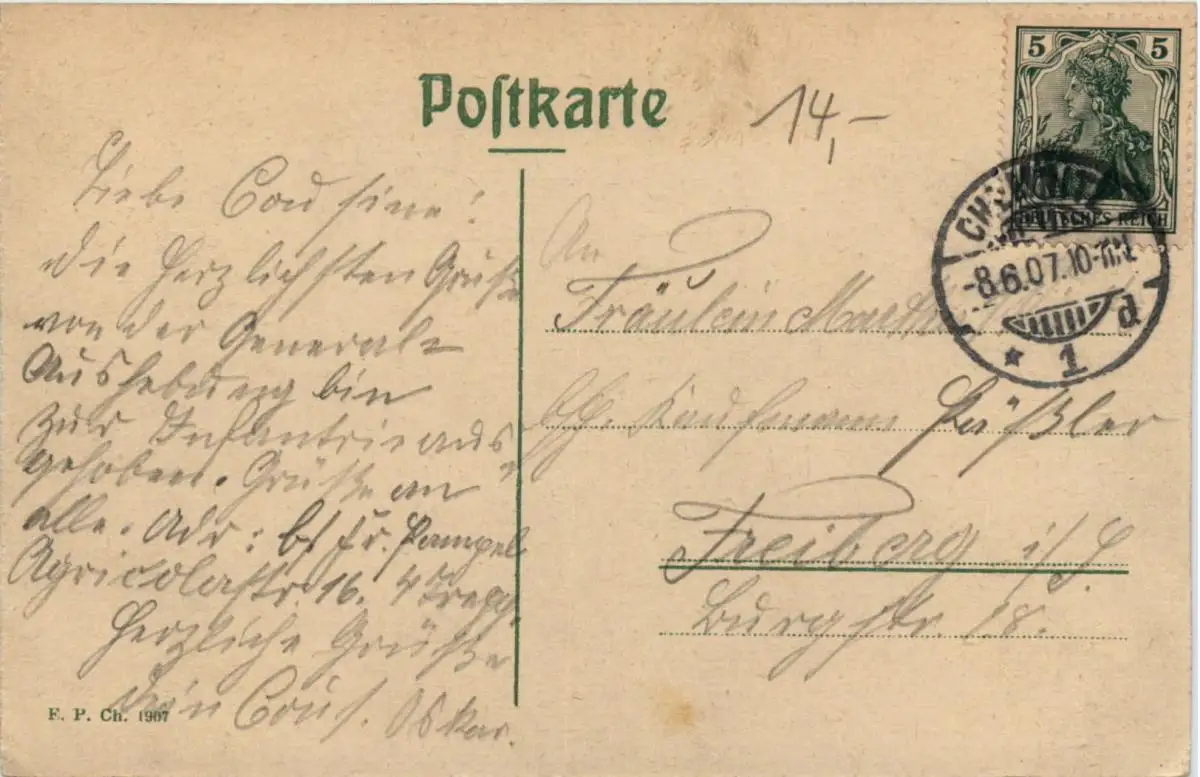 Postkarte
14,-
5 5
DEUTSCHES REICH
CHEMNITZ
-8.6.07.10-11V.
* 1 d
Liebe Cousine!
die herzlichsten Grüße
von der General-
Aushebung bin
zur Infantrie aus-
gehoben. Grüße an
alle. Adr: b/ Fr. Pampel
Agricolastr. 16. 4 Trepp.
Herzliche Grüße
Dein Cous. Oskar.
An
Fräulein Martha
b/H. Kaufmann Päßler
Freiberg i/S.
Burgstr. 18.
E. P. Ch. 1907